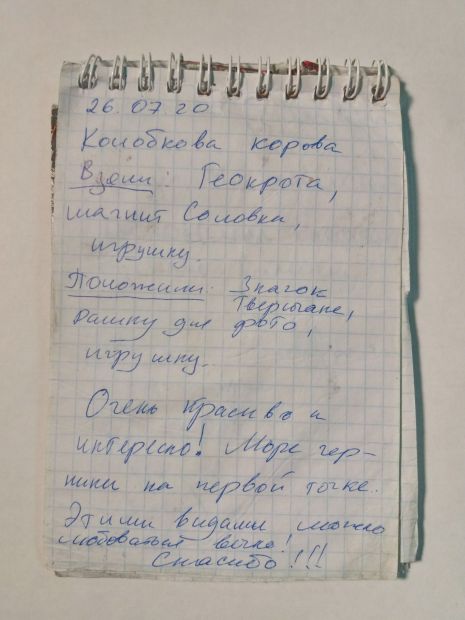 26.07.20
Колобкова корова
Взяли: Геокрота,
магнит Соловки,
игрушку.
Положили: Значок
Тверичане,
рамку для фото,
игрушку.
Очень красиво и
интересно! Море чер-
ники на первой точке.
Этими видами можно
любоваться вечно!
Спасибо!!!